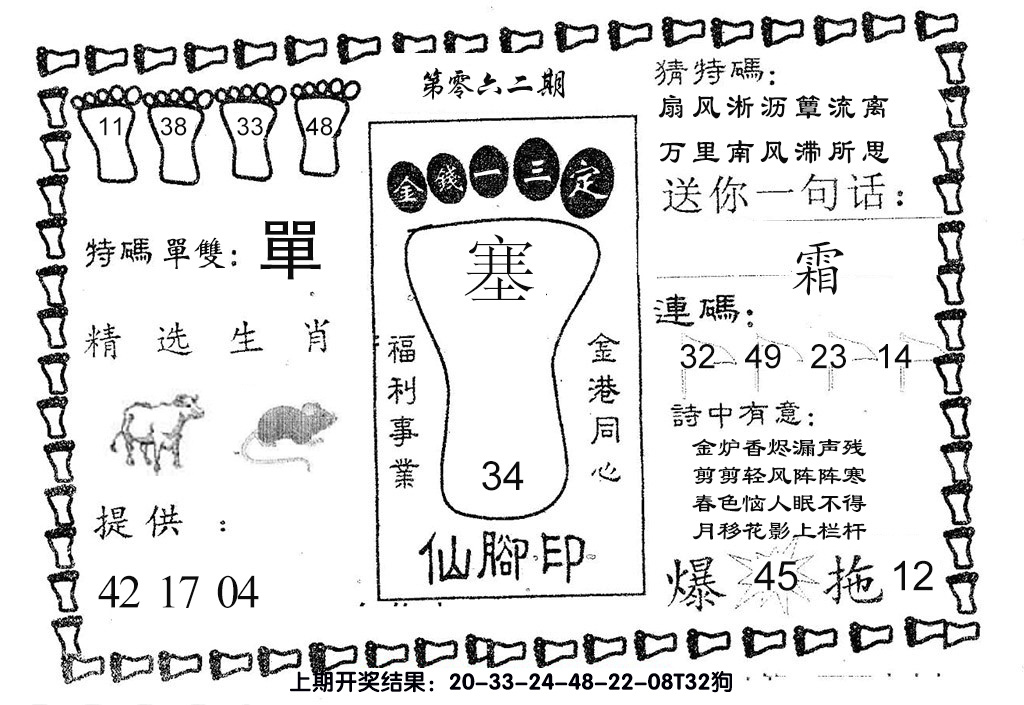 第零六二期
11 38 33 48
特碼單雙：單
精选生肖
提供：
42 17 04
金錢一三定
塞
福利事業
金港同心
34
仙腳印
猜特碼：
扇风淅沥簟流离
万里南风滞所思
送你一句话：
霜
連碼：
32 49 23 14
詩中有意：
金炉香烬漏声残
剪剪轻风阵阵寒
春色恼人眠不得
月移花影上栏杆
爆 45 拖 12
上期开奖结果：20-33-24-48-22-08T32狗